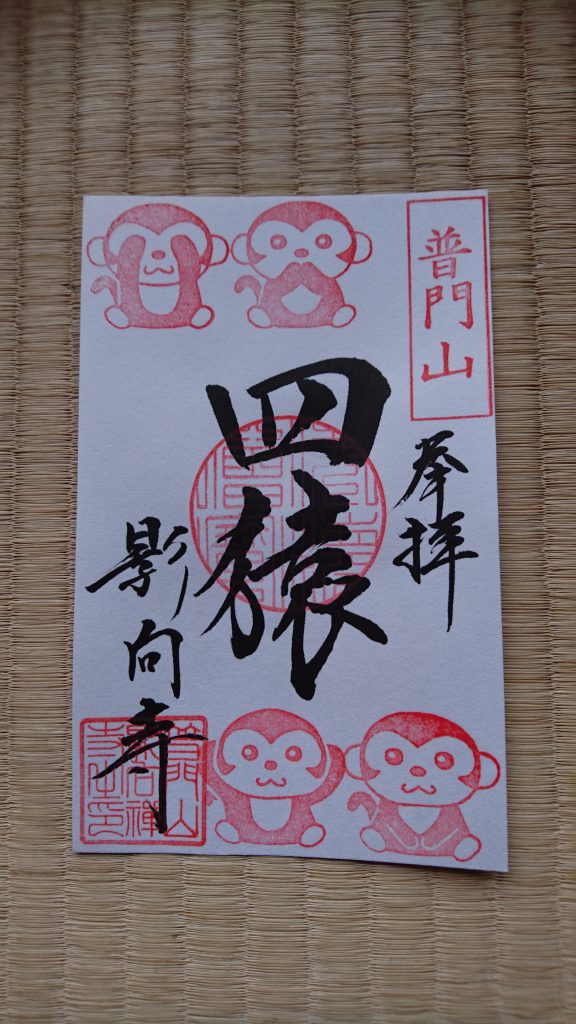 普門山
奉拝
四猿
影向寺